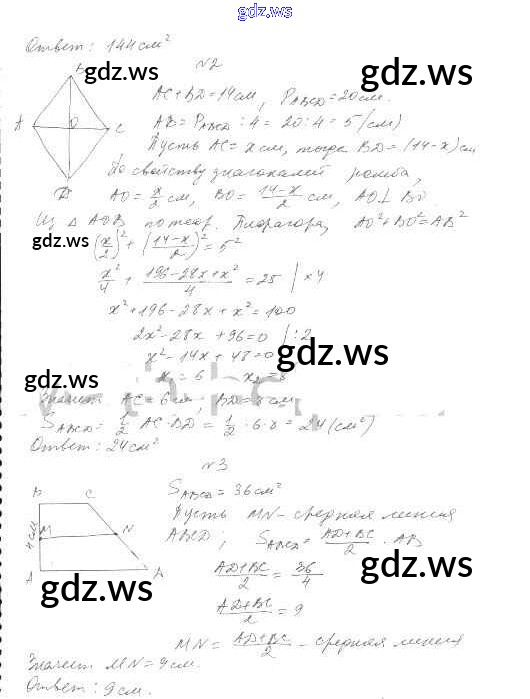 gdz.ws
Ответ: 144 см²
№2
gdz.ws
gdz.ws
B
A
O
C
D
AC+BD=14см, P_ABCD=20см.
AB=P_ABCD:4=20:4=5(см)
Пусть AC=x см, тогда BD=(14-x)см
По свойству диагоналей ромба,
AO=x/2 см, BO=(14-x)/2 см, AO⊥BO.
Из △AOB по теор. Пифагора, AO²+BO²=AB²
gdz.ws
(x/2)²+((14-x)/2)²=5²
x²/4+(196-28x+x²)/4=25 | ×4
x²+196-28x+x²=100
2x²-28x+96=0 | :2
x²-14x+48=0
gdz.ws
gdz.ws
x₁=6 x₂=8
Значит AC=6см, BD=8см
S_ABCD=1/2 AC·BD=1/2·6·8=24(см²)
Ответ: 24см²
gdz.ws
№3
B
C
M
N
A
S_ABCD=36см²
Пусть MN-средняя линия
ABCD; S_ABCD=(AD+BC)/2·AB
(AD+BC)/2=36/4
gdz.ws
gdz.ws
(AD+BC)/2=9
MN=(AD+BC)/2-средняя линия
Значит MN=9см.
Ответ: 9см.
gdz.ws